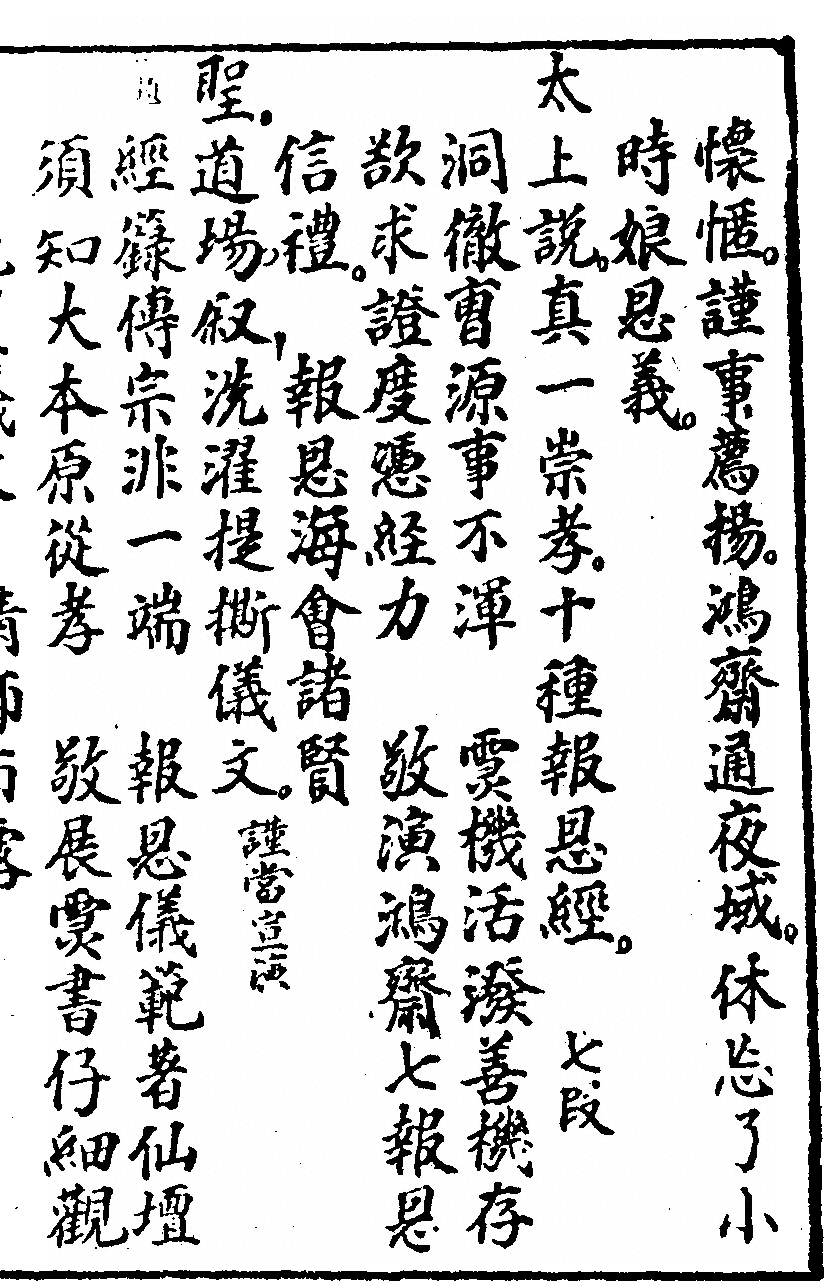 懷慪。謹事薦揚。鴻齋通夜城。休忘了小
時娘恩義。
太上說。真一崇孝。十種報恩經。 七段
洞徹曹源事不渾 霛機活潑善機存
欲求證度憑経力 敬演鴻齋七報恩
信禮。 報恩海會諸賢
聖。道場。叙洗濯提撕儀文。謹當宣演
經籙傳宗非一端 報恩儀範著仙壇
須知大本原從孝 敬展霛書仔細觀